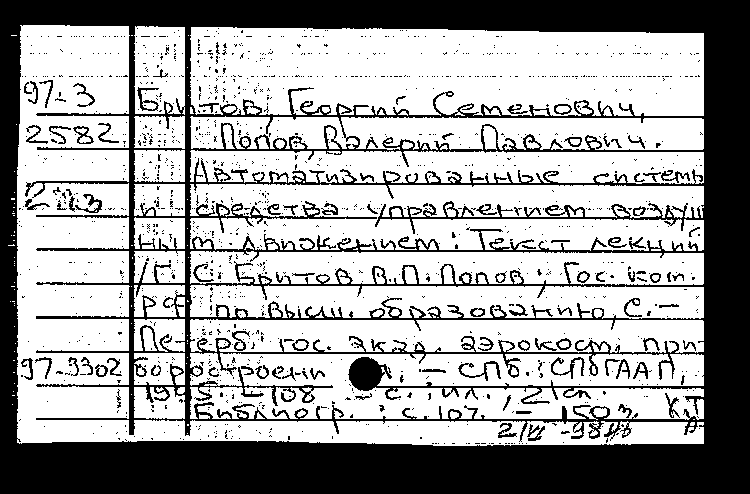 97-3 Бритов, Георгий Семенович,
2582 Попов, Валерий Павлович.
Автоматизированные системы
и средства управлением воздуш
ным движением: Текст лекций
/Г. С. Бритов, В.П. Попов; Гос. ком.
РФ по высш. образованию, С.–
Петерб. гос. акад. аэрокосм. при
97-9302 боростроени – СПб.: СПбГААП,
1995. – 108 с.: ил.; 21 см.
Библиогр.: с. 107. – 150 э. К.Т
2/VI -98